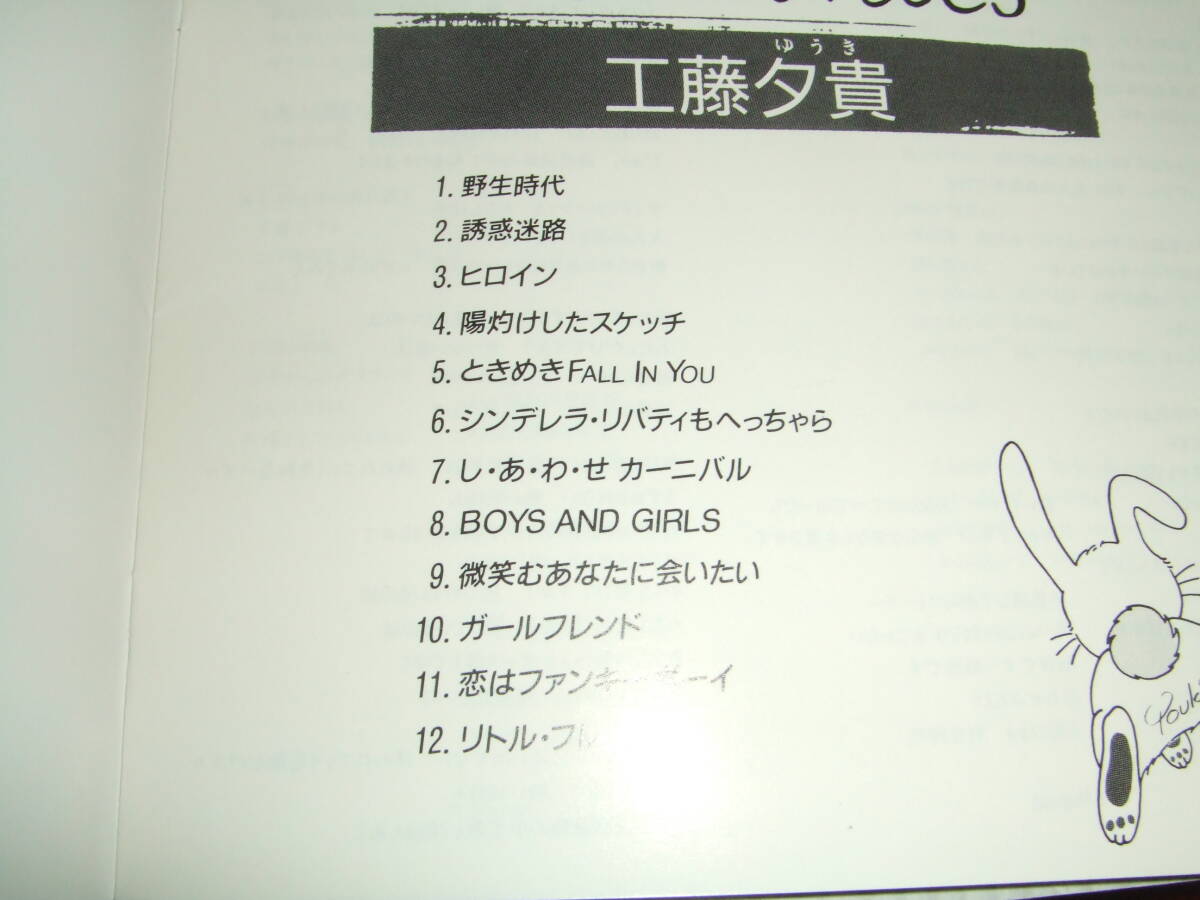 ゆうき
工藤夕貴
1. 野生時代
2. 誘惑迷路
3. ヒロイン
4. 陽灼けしたスケッチ
5. ときめきFALL IN YOU
6. シンデレラ・リバティもへっちゃら
7. し・あ・わ・せ カーニバル
8. BOYS AND GIRLS
9. 微笑むあなたに会いたい
10. ガールフレンド
11. 恋はファンキーボーイ
12. リトル・